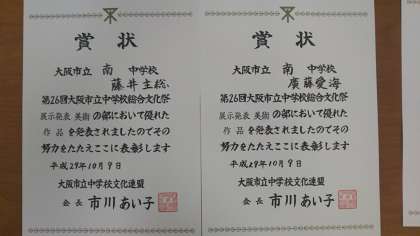 賞状
大阪市立 南 中学校
藤井主総
第26回大阪市立中学校総合文化祭
展示発表 美術 の部において優れた
作品 を発表されましたのでその
努力をたたえここに表彰します
平成29年10月9日
大阪市立中学校文化連盟
会長 市川あい子
賞状
大阪市立 南 中学校
廣藤愛海
第26回大阪市立中学校総合文化祭
展示発表 美術 の部において優れた
作品 を発表されましたのでその
努力をたたえここに表彰します
平成29年10月9日
大阪市立中学校文化連盟
会長 市川あい子